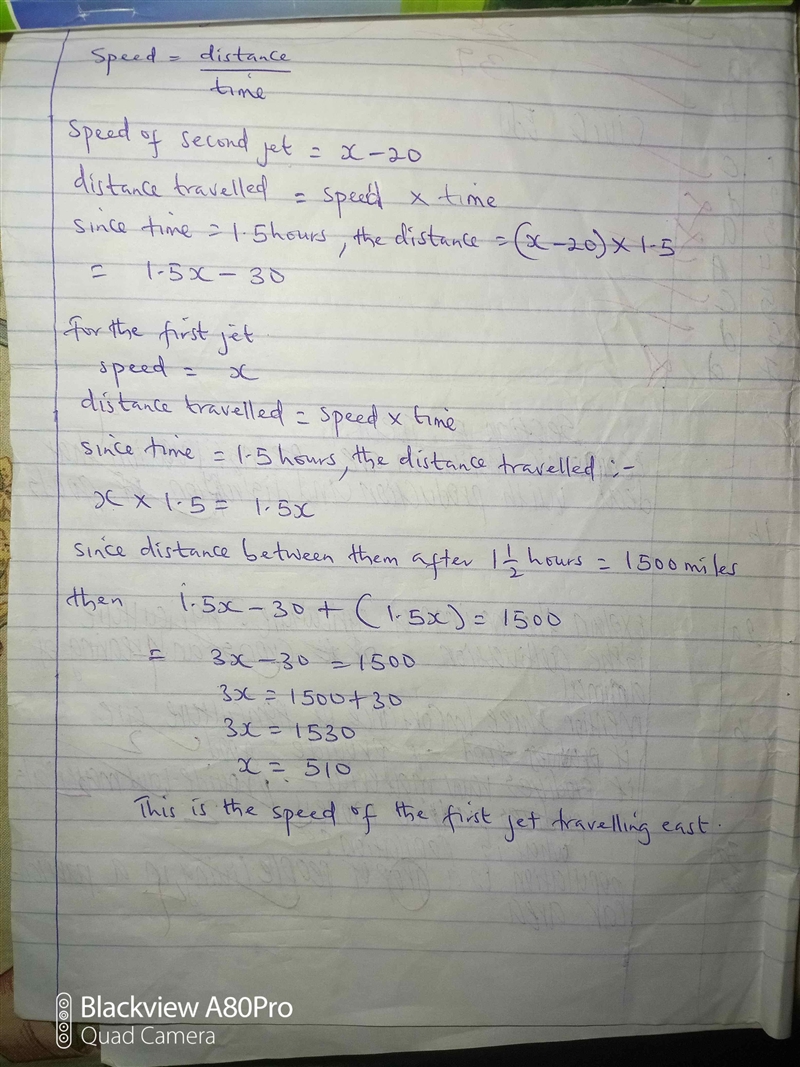 Speed = distance
time
Speed of second jet = x - 20
distance travelled = speed × time
since time = 1.5 hours, the distance = (x - 20) × 1.5
= 1.5x - 30
for the first jet
speed = x
distance travelled = speed × time
since time = 1.5 hours, the distance travelled :-
x × 1.5 = 1.5x
since distance between them after 1 1/2 hours = 1500 miles
then 1.5x - 30 + (1.5x) = 1500
= 3x - 30 = 1500
3x = 1500 + 30
3x = 1530
x = 510
This is the speed of the first jet travelling east.
Blackview A80Pro
Quad Camera